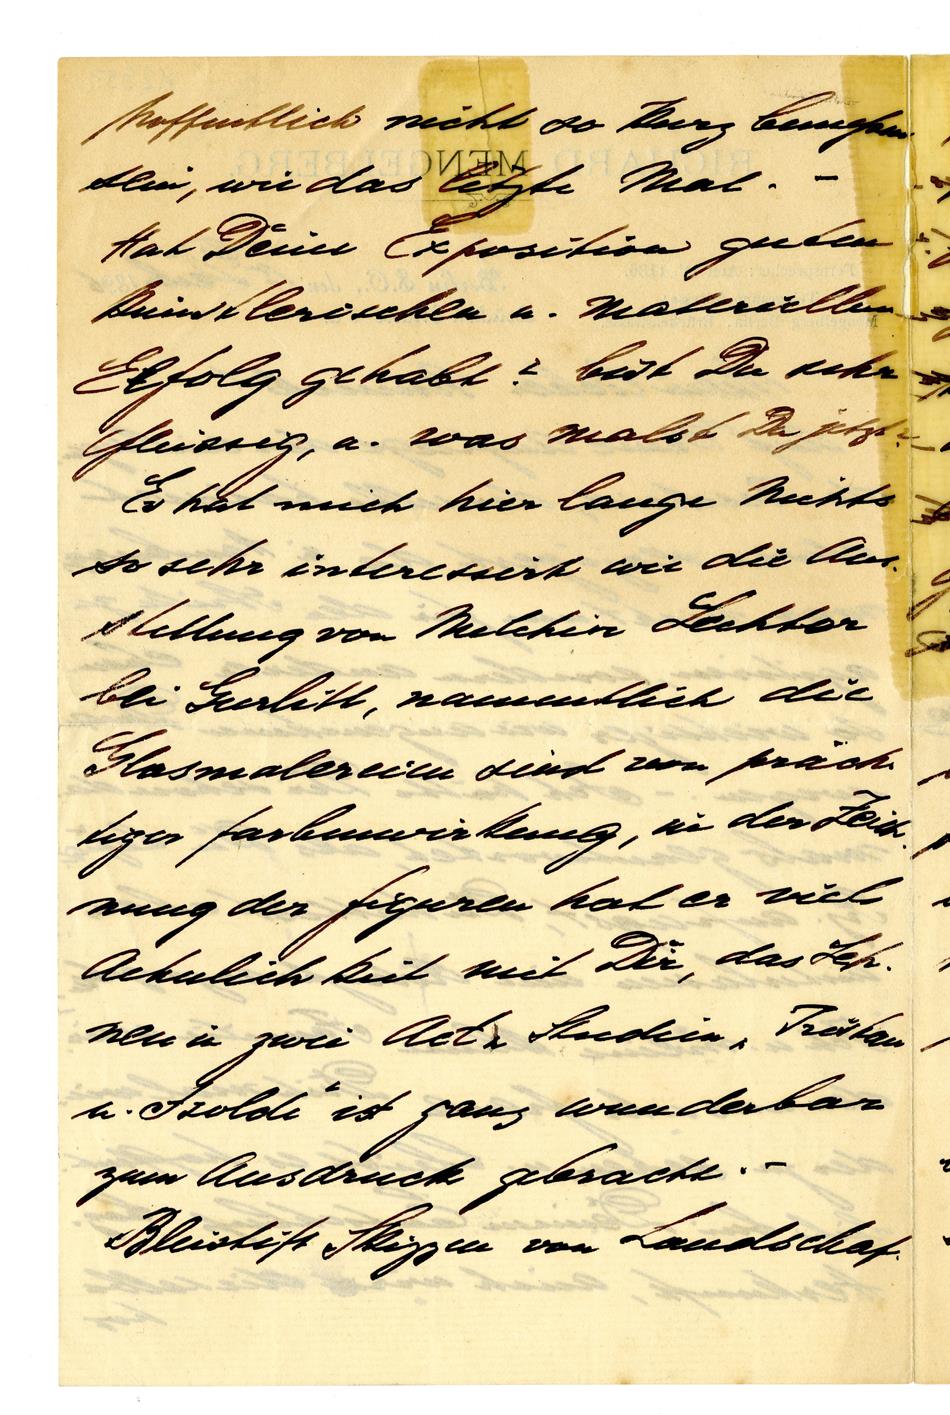 hoffentlich nicht so kurz bemessen
sein, wie das letzte Mal. –
Hat Deine Exposition guten
künstlerischen u. materiellen
Erfolg gehabt? bist Du sehr
fleissig, u. was malst Du jetzt?
Es hat mich hier lange Nichts
so sehr interessirt wie die Aus-
stellung von Melchior Lechter
bei Gurlitt, namentlich die
Glasmalereien sind von präch-
tiger Farbenwirkung, in der Zeich-
nung der Figuren hat er viel
Aehnlichkeit mit Dir, das Seh-
nen in zwei Act Studien „Tristan
u. Isolde“ ist ganz wunderbar
zum Ausdruck gebracht. –
Bleistift Skizzen von Landschaf-
RICHARD MENGELBERG